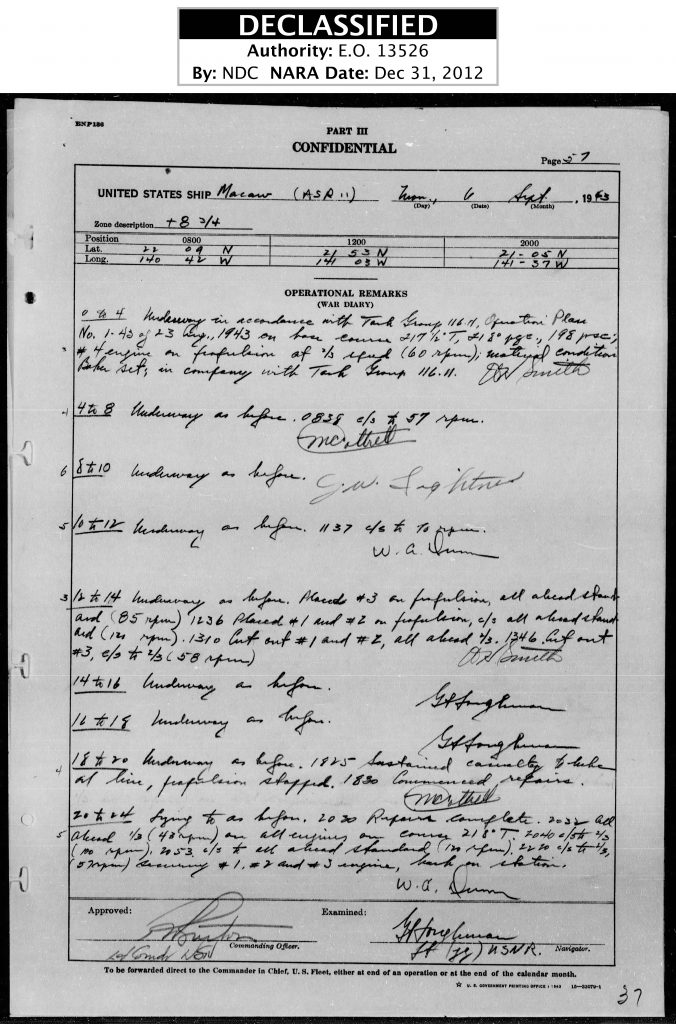 DECLASSIFIED
Authority: E.O. 13526
By: NDC NARA Date: Dec 31, 2012
ENP186
PART III
CONFIDENTIAL
Page 57
UNITED STATES SHIP Macaw (ASR 11) Mon., 6 Sept , 1943
(Day) (Date) (Month)
Zone description +8 3/4
Position 0800 1200 2000
Lat. 22 09 N 21 53 N 21-05 N
Long. 140 42 W 141 03 W 141-37 W
OPERATIONAL REMARKS
(WAR DIARY)
0 to 4 Underway in accordance with Task Group 116.11, Operation Plan
No. 1-43 of 23 Aug., 1943 on base course 217½°T, 218° pgc, 198 psc;
#4 engine on propulsion at 2/3 speed (60 rpm); material condition
Baker set; in company with Task Group 116.11. Smith
4 4 to 8 Underway as before. 0838 c/s to 57 rpm.
6 8 to 10 Underway as before. J.W. Lightner
5 10 to 12 Underway as before. 1137 c/s to 70 rpm.
W. A. Dunn
3 12 to 14 Underway as before. Placed #3 on propulsion, all ahead stand-
ard (85 rpm) 1236 Placed #1 and #2 on propulsion, c/s all ahead stand-
ard (120 rpm). 1310 Cut out #1 and #2, all ahead 2/3. 1346 Cut out
#3, c/s to 2/3 (58 rpm) Smith
14 to 16 Underway as before.
16 to 18 Underway as before.
4 18 to 20 Underway as before. 1825 Sustained casualty to lube
oil line, propulsion stopped. 1830 Commenced repairs.
20 to 24 Lying to as before. 2030 Repairs complete. 2032 All
5 ahead 1/3 (43 rpm) on all engines on course 218°T. 2040 c/s to 2/3
rpm). 2053 c/s to all ahead standard (120 rpm). 2220 c/s to 2/3,
(57 rpm) securing #1, #2 and #3 engine, back on station.
W. A. Dunn
Approved: Examined:
Lt Comdr USN Commanding Officer. Lt (jg) USNR. Navigator.
To be forwarded direct to the Commander in Chief, U. S. Fleet, either at end of an operation or at the end of the calendar month.
☆ U. S. GOVERNMENT PRINTING OFFICE : 1943
37